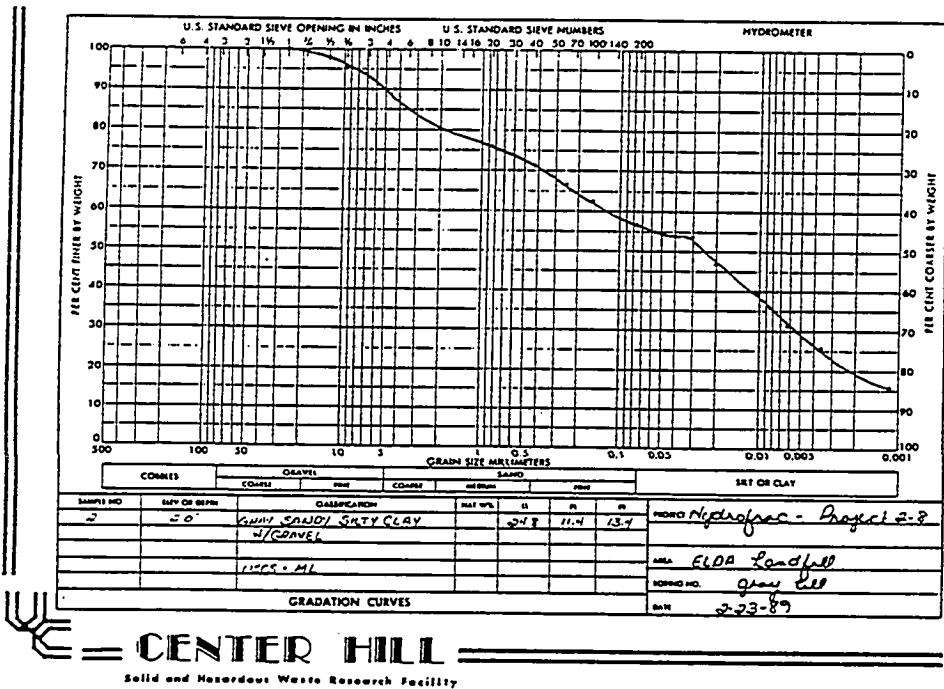 U.S. STANDARD SIEVE OPENING IN INCHES U.S. STANDARD SIEVE NUMBERS HYDROMETER
6 4 3 2 1½ 1 ¾ ½ ⅜ 3 4 6 8 10 14 16 20 30 40 50 70 100 140 200
100 90 80 70 60 50 40 30 20 10 0
PER CENT FINER BY WEIGHT
0 10 20 30 40 50 60 70 80 90 100
PER CENT COARSER BY WEIGHT
500 100 50 10 5 1 0.5 0.1 0.05 0.01 0.005 0.001
GRAIN SIZE MILLIMETERS
COBBLES GRAVEL SAND SILT OR CLAY
COARSE FINE COARSE MEDIUM FINE
SAMPLE NO ELEV OR DEPTH CLASSIFICATION NAT W% LL PL PI
2 GRAY SANDY SILTY CLAY 24.8 11.4 13.4
W/GRAVEL
USCS - ML
PROJECT Hydrofrac - Project 2-8
AREA ELDA Landfill
BORING NO. gray till
DATE 2-23-89
GRADATION CURVES
CENTER HILL
Solid and Hazardous Waste Research Facility